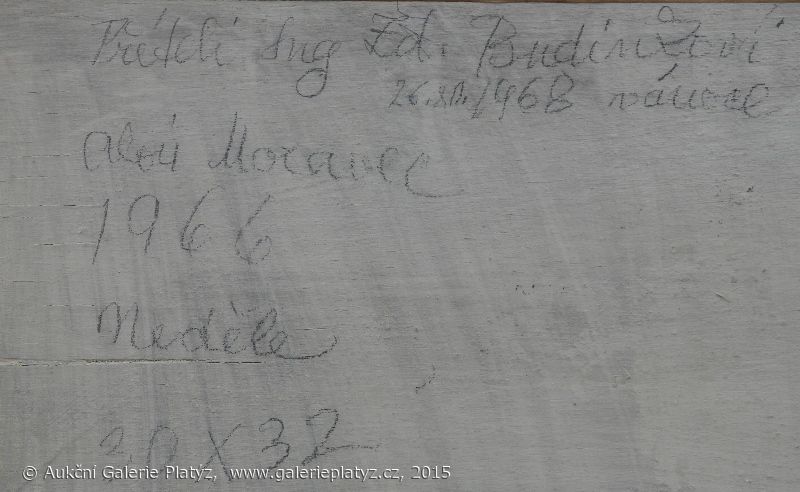 Příteli Ing Zd. Budínžovi
26.XII.1968 vánoce
Alois Moravec
1966
Neděle
20X32
© Aukční Galerie Platýz, www.galerieplatyz.cz, 2015